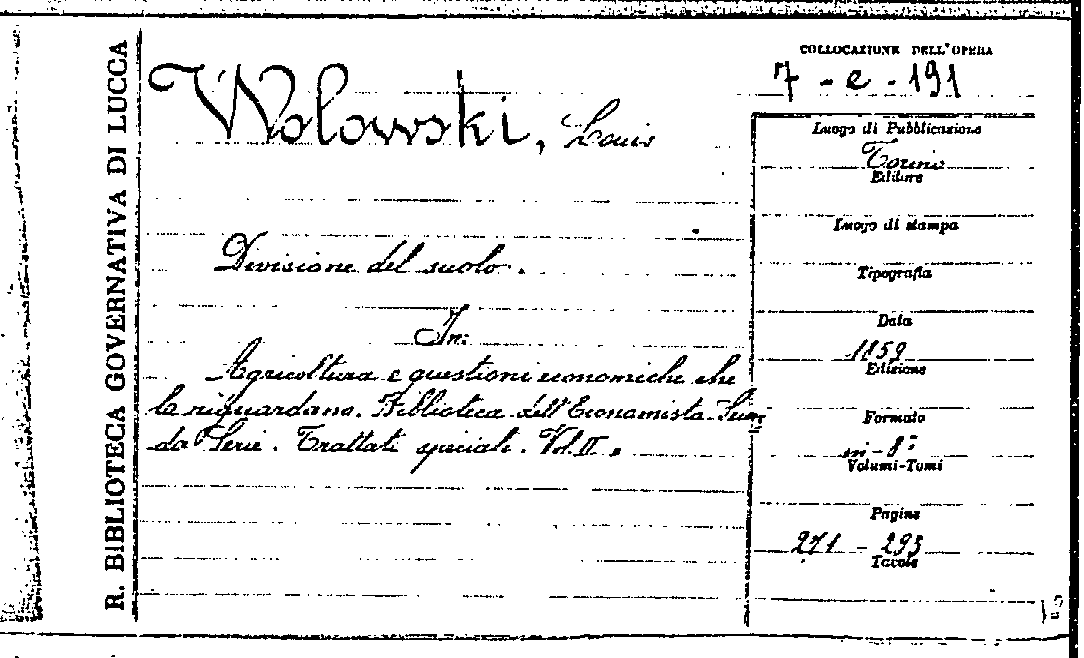 R. BIBLIOTECA GOVERNATIVA DI LUCCA
Wolowski, Louis
Divisione del suolo.
In:
Agricoltura e questioni economiche che
la riguardano. Biblioteca dell'Economista. Secon
da Serie. Trattati speciali. Vol. II.
COLLOCAZIONE DELL'OPERA
7 - e - 191
Luogo di Pubblicazione
Torino
Editore
Luogo di stampa
Tipografia
Data
1859
Edizione
Formato
in-8°
Volumi-Tomi
Pagine
271 - 293
Tavole